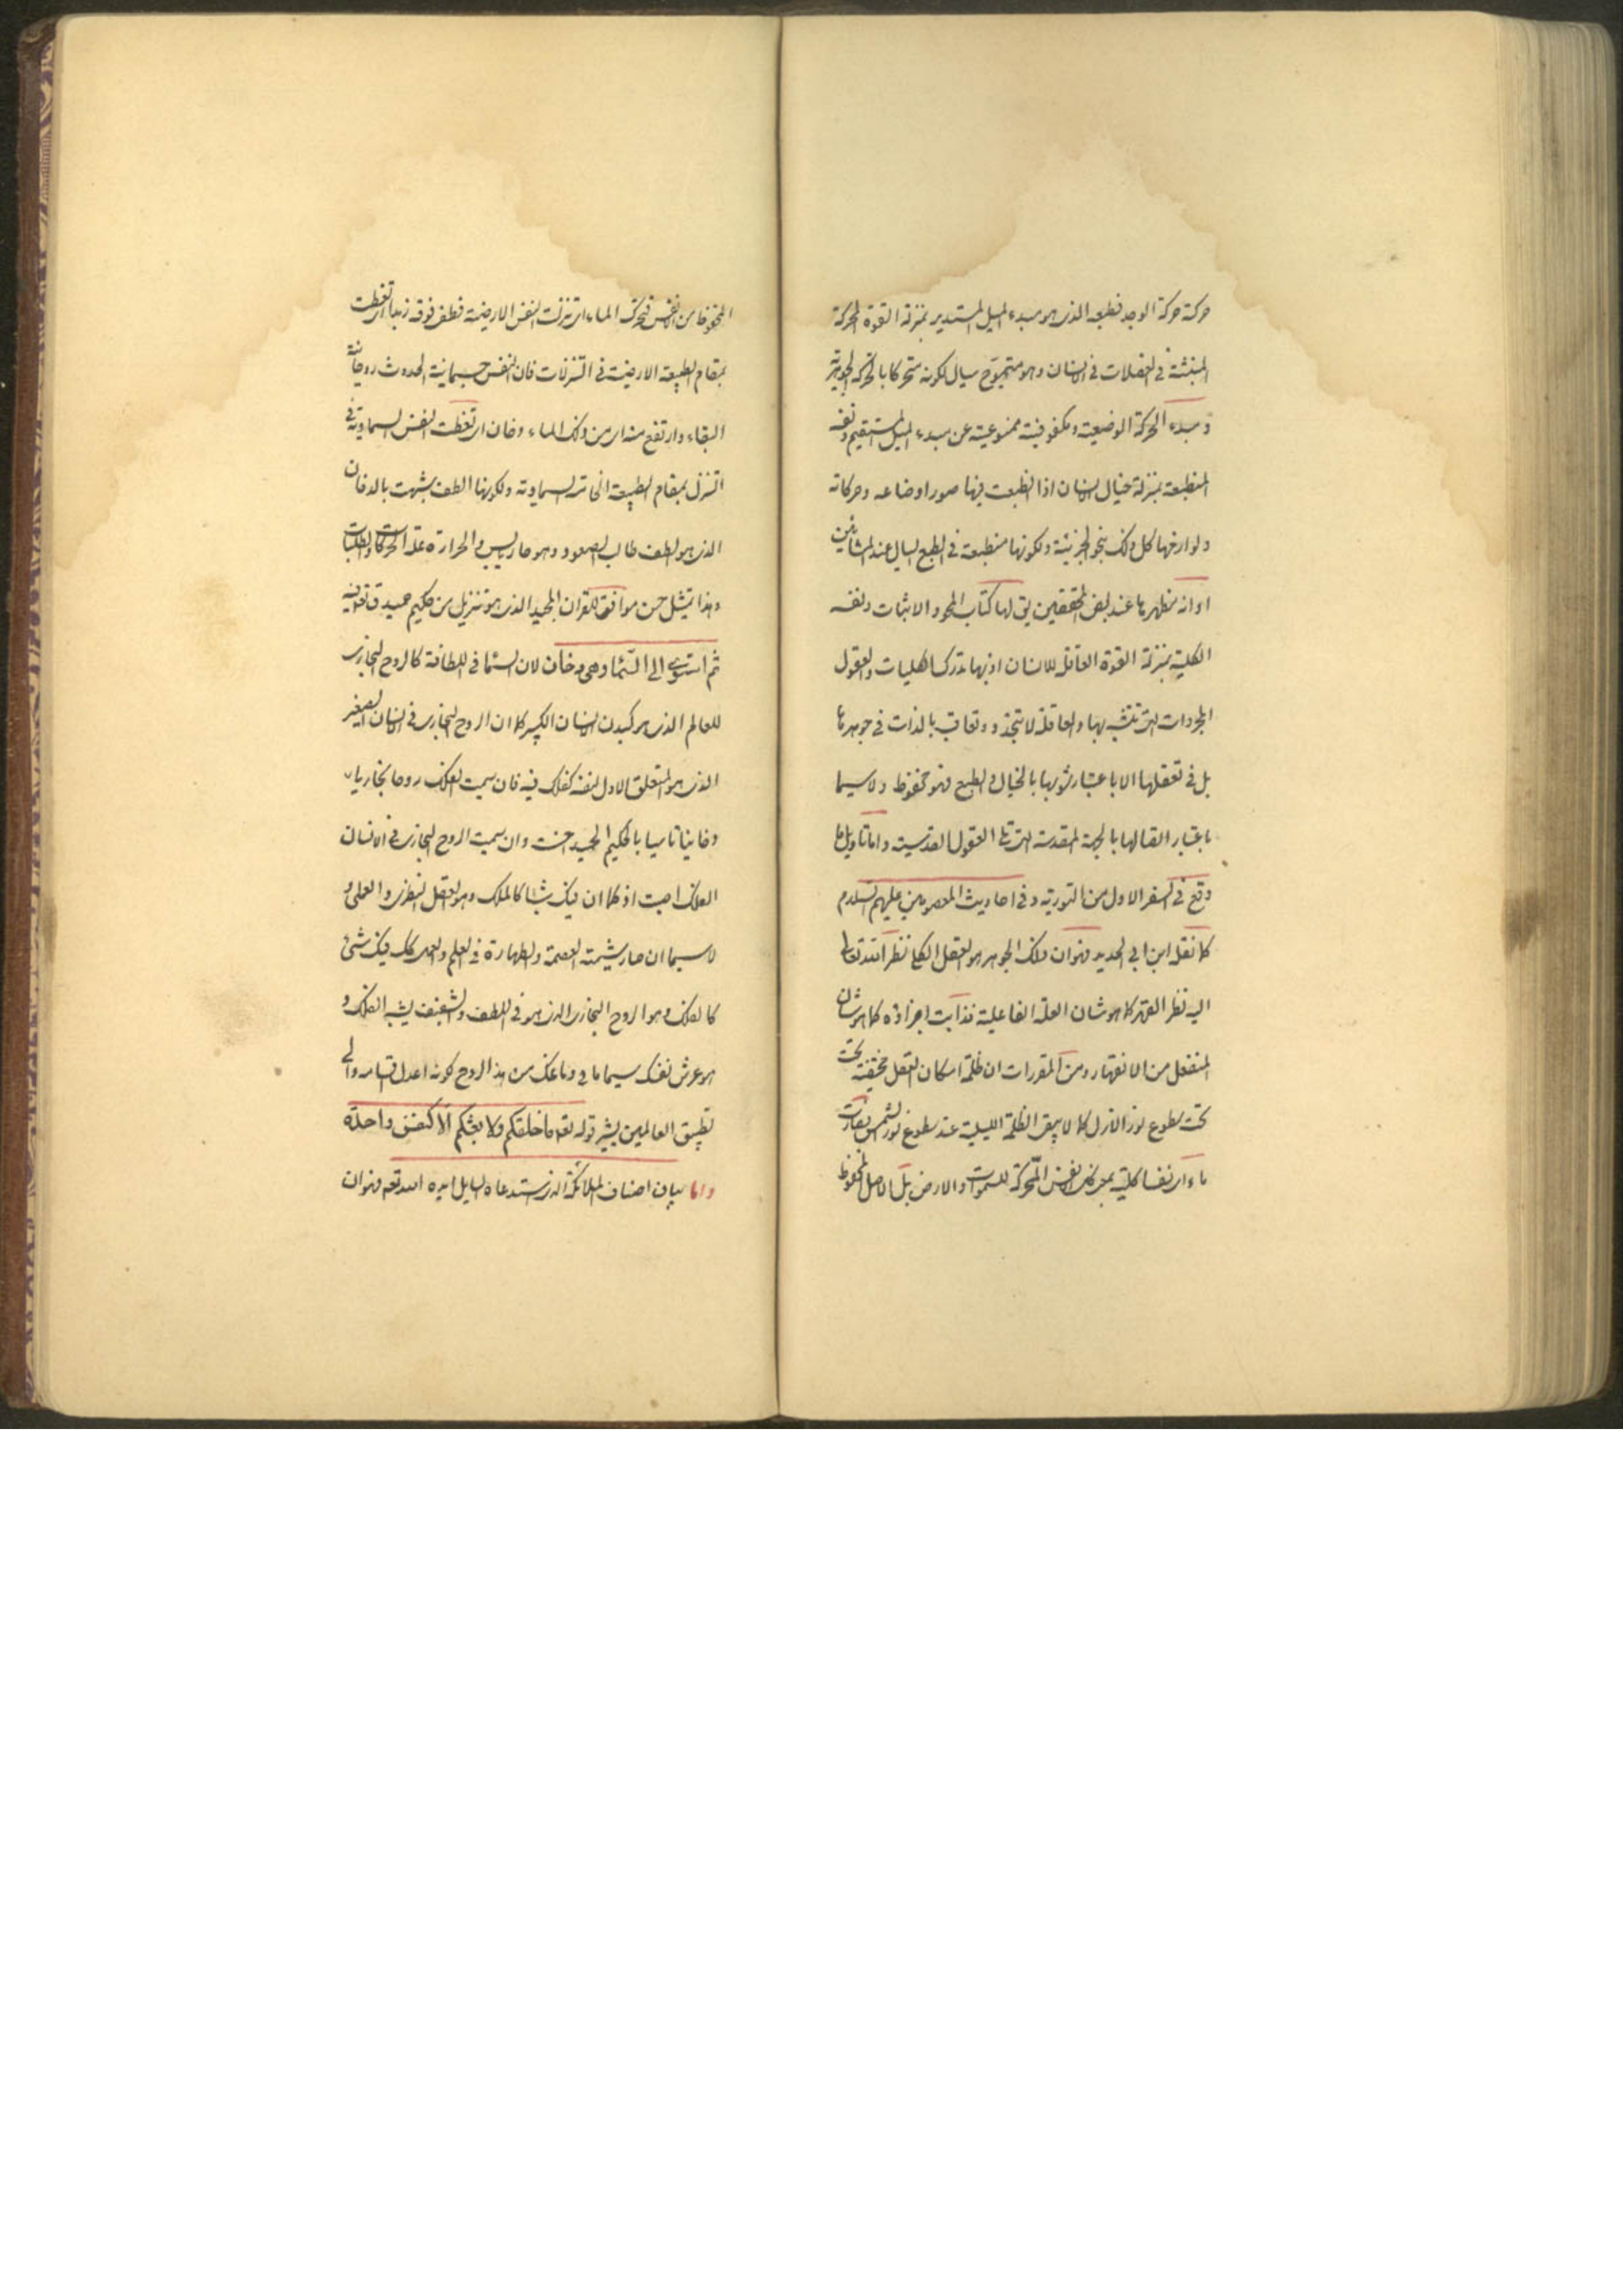 حركة حركة الوجد فطبعه الذى هو مبدء الميل المستدير بمنزلة القوة المحركة
المنبثة فى العضلات فى الانسان وهو متموج سيال لكونه متحركا بالحركة الجوهرية
و مبدء الحركة الوضعية ومكفوفيته ممنوعيته عن مبدء الميل المستقيم ونفسه
المنطبعة بمنزلة خيال الانسان اذا نطبعت فيها صور اوضاعه وحركاته
ولوازمها كل ذلك بنحو الجزئية ولكونها منطبعة فى الطبع السيال عند المشائين
او انه مظهرها عند بعض المحققين يق لها كتاب المحو والاثبات ونفسه
الكلية بمنزلة القوة العاقلة للانسان اذ بها تدرك الكليات والعقول
المجردات التى تتشبه بها والعاقلة لا تتجدد وتعاقب بالذات فى جوهرها
بل فى تعقلها الا باعتبار شوبها بالخيال والطبع فهو محفوظ ولا سيما
باعتبار اتصالها بالجهة المقدسة التى تلى العقول القدسية واما تاويل ما
وقع فى السفر الاول من التورية وفى احاديث المعصومين عليهم السلام
كما نقله ابن ابى الحديد فهو ان ذلك الجوهر هو العقل الكلى نظر الله تعالى
اليه نظر القهر كما هو شان العلة الفاعلية فذابت اجزاؤه كما هو شان
المنفعل من الانقهار ومن المقررات ان ظلمة امكان العقل مختفية تحت
تحت سطوع نور الازل كما لا يبقى الظلمة الليلية عند سطوع نور الشمس فصارت
ماء اى نفسا كلية بمعنى كل النفس المحركة للسموات والارض بل الاصل المحفوظ
المحفوظا من النفس فتحرك الماء اى تنزلت النفس الارضية فطفى فوقه زبد اى تغطت
بمقام الطبيعة الارضية فى التنزلات فان النفس جسمانية الحدوث روحانية
البقاء وارتفع منه اى من ذلك الماء دخان اى تغطت النفس السماوية فى
التنزل بمقام الطبيعة الخامسة السماوية ولكونها الطف شبهت بالدخان
الذى هو لطيف طالب الصعود وهو حار يابس والحرارة علة الحركات والطلبات
وهذا تمثيل حسن موافق للقران المجيد الذى هو تنزيل من حكيم حميد ق تعالى
ثم استوى الى السماء وهى دخان لان السماء فى اللطافة كالروح البخارى
للعالم الذى هو كبدن الانسان الكبير كما ان الروح البخارى فى الانسان الصغير
الذى هو المتعلق الاول لنفسه كفلك فيه فان سميت الفلك روحا بخاريا
دخانيا تاسيا بالحكيم الحميد احسنت وان سميت الروح البخارى فى الانسان
الفلك اصبت اذ كما ان فيك شيئا كالملك وهو العقل النظرى والعملى و
لا سيما ان صار شيمته العصمة والطهارة فى العلم والعمل كك فيك شئ
كالفلك وهو الروح البخارى الذى هو فى اللطف والشفيف يشبه الفلك و
هو عرش نفسك سيما ما فى دماغك من هذا الروح كونه اعدل اقسامه والى
تطبيق العالمين يشير قوله تعه ما خلقكم ولا بعثكم الا كنفس واحدة
واما بيان اصناف الملائكة الذى استدعاه السايل ايده الله تعه فهو ان